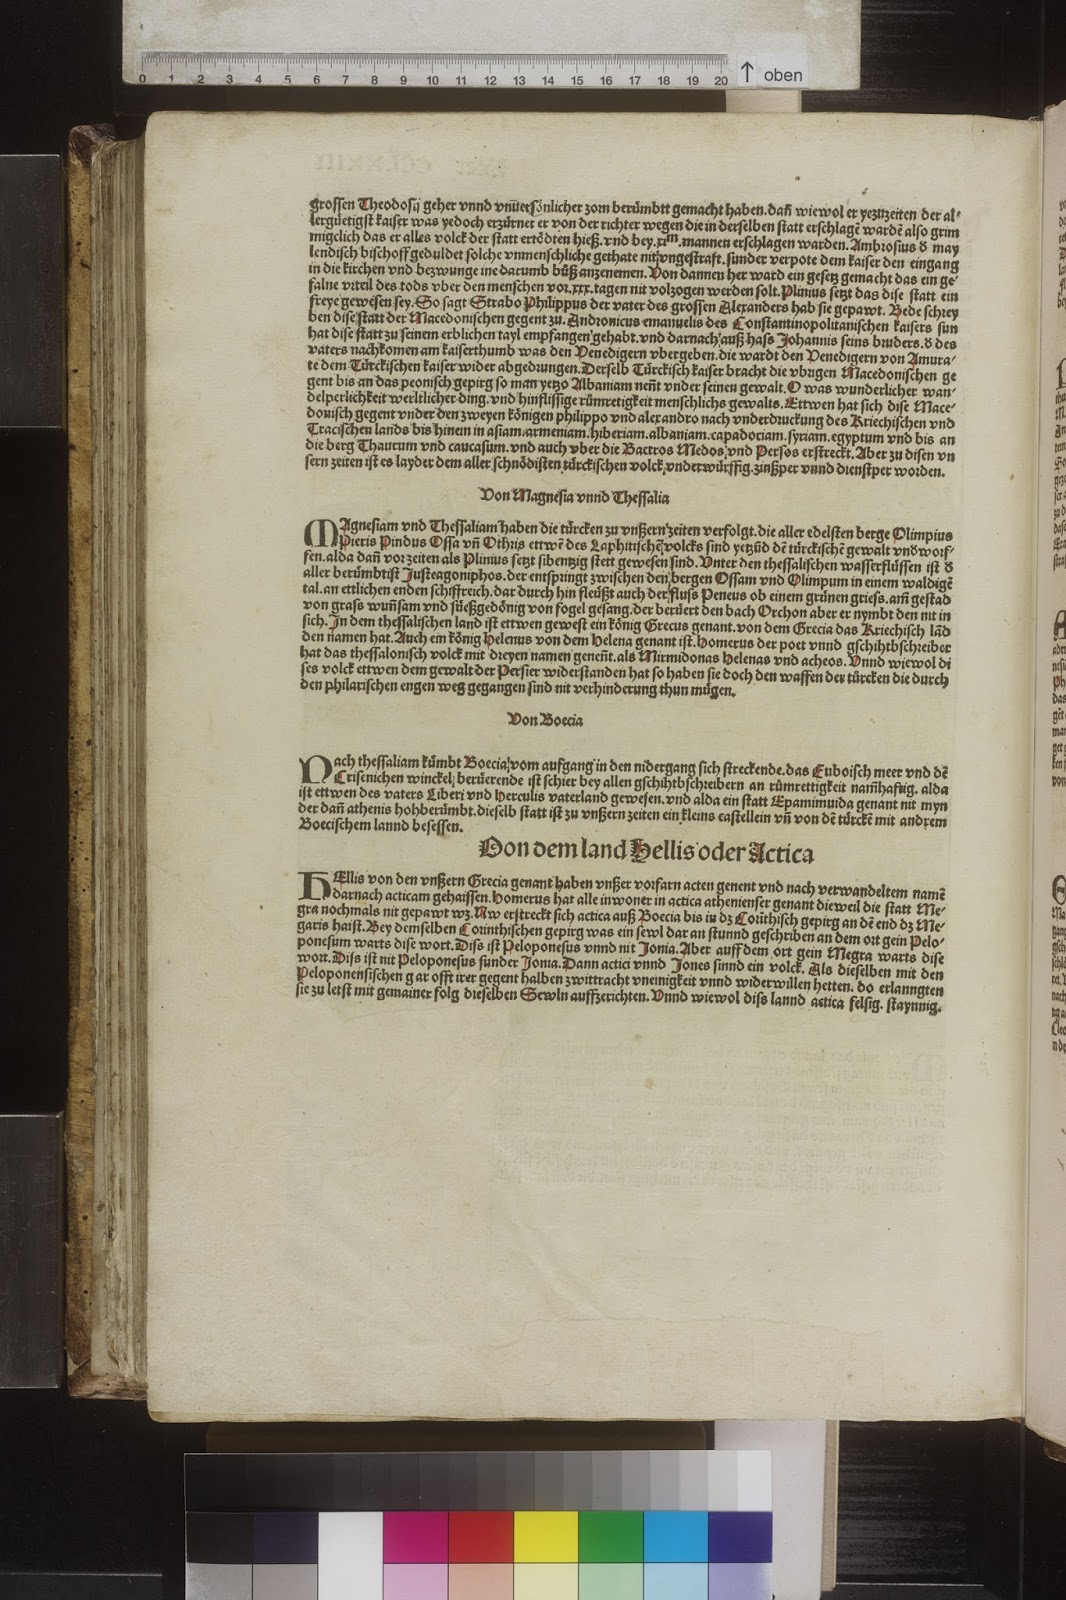 0 1 2 3 4 5 6 7 8 9 10 11 12 13 14 15 16 17 18 19 20 ↑ oben
grossen Theodosij geher vnnd vnuersönlicher zorn berümbtt gemacht haben. dañ wiewol er yezuzeiten der al-
lergüetigst kaiser was yedoch erzürnet er von der richter wegen die in derselben statt erschlagē wardē also grim
migclich das er alles volck der statt ertödten hieß. vnd bey .xiiᵐ. mannen erschlagen warden. Ambrosius d may
lendisch bischoff geduldet solche vnmenschliche gethate nit vngestraft. sunder verpote dem kaiser den eingang
in die kirchen vnd bezwunge ine darumb büß anzenemen. Von dannen her ward ein gesetz gemacht das ein ge-
falne vrteil des tods vber den menschen vor .xxx. tagen nit volzogen werden solt. Plinius setzt das dise statt ein
freye gewesen sey. So sagt Strabo Philippus der vater des grossen Alexanders hab sie gepawt. Bede schrey
ben dise statt der Macedonischen gegent zu. Andronicus emanuelis des Constantinopolitanischen kaisers sun
hat dise statt zu seinem erblichen tayl empfangen gehabt. vnd darnach auß hass Johannis seins bruders. d des
vaters nachkomen am kaiserthumb was den Venedigern vbergeben. die wardt den Venedigern von Amura-
te dem Türckischen kaiser wider abgedrungen. Derselb Türckisch kaiser bracht die vbrigen Macedonischen ge
gent bis an das peonisch gepirg so man yetzo Albaniam neñt vnder seinen gewalt. O was wunderlicher wan-
delperlichkeit werltlicher ding. vnd hinflissige rümretigkeit menschlichs gewalts. Ettwen hat sich dise Mace-
donisch gegent vnder den zweyen königen philippo vnd alexandro nach vnderdruckung des Kriechischen vnd
Tracischen lands bis hinein in asiam. armeniam. hiberiam. albaniam. capadociam. syriam. egyptum vnd bis an
die berg Thaurum vnd caucasum. vnd auch vber die Bactros Medos vnd Persos erstreckt. Aber zu disen vn
sern zeiten ist es layder dem aller schnödisten türckischen volck vnderwürffig. zinßper vnnd dienstper worden.
Von Magnesia vnnd Thessalia
MAgnesiam vnd Thessaliam haben die türcken zu vnßern zeiten verfolgt. die aller edelsten berge Olimpius
Pieris Pindus Ossa vñ Othris ettwē des Laphitischē volcks sind yetzūd dē türckischē gewalt vnd worf-
fen. alda dañ vorzeiten als Plinius setzt sibentzig stett gewesen sind. Vnter den thessalischen wasserflüssen ist d
aller berümbtist Justeagoniphos. der entspringt zwischen den bergen Ossam vnd Olimpum in einem waldigē
tal. an ettlichen enden schiffreich. dar durch hin fleüßt auch der fluss Peneus ob einem grünen griess. am gestad
von grass wuñsam vnd süeßgedönig von fogel gesang. der berüert den bach Orchon aber er nymbt den nit in
sich. In dem thessalischen land ist ettwen gewest ein könig Grecus genant. von dem Grecia das Kriechisch lād
den namen hat. Auch ein könig Helenus von dem Helena genant ist. Homerus der poet vnnd gschihtbschreiber
hat das thessalonisch volck mit dreyen namen geneñt. als Mirmidonas Helenas vnd acheos. Vnnd wiewol di
ses volck ettwen dem gewalt der Persier widerstanden hat so haben sie doch den waffen der türcken die durch
den philarischen engen weg gegangen sind nit verhinderung thun mügen.
Von Boecia
Nach thessaliam kümbt Boecia vom aufgang in den nidergang sich streckende. das Euboisch meer vnd dē
Crisenichen winckel berüerende ist schier bey allen gschihtbschreibern an rümrettigkeit nam̄haftig. alda
ist ettwen des vaters Liberi vnd Herculis vaterland gewesen. vnd alda ein statt Epamimuida genant nit myn
der dañ athenis hohberümbt. dieselb statt ist zu vnßern zeiten ein kleins castellein vñ von dē türckē mit andrem
Boecischem lannd besessen.
Von dem land Hellis oder Actica
HEllis von den vnßern Grecia genant haben vnßer vorfarn acten genent vnd nach verwandeltem namē
darnach acticam gehaissen. Homerus hat alle inwoner in actica athenienser genant dieweil die statt Me-
gra nochmals nit gepawt wz. Nw erstreckt sich actica auß Boecia bis in dz Corīthisch gepirg an dē end dz Me-
garis haist. Bey demselben Corinthischen gepirg was ein sewl dar an stunnd geschriben an dem ort gein Pelo-
ponesum warts dise wort. Diss ist Peloponesus vnnd nit Jonia. Aber auff dem ort gein Megra warts dise
wort. Diss ist nit Peloponesus sunder Jonia. Dann actici vnnd Jones sinnd ein volck. Als dieselben mit den
Peloponensischen gar offt irer gegent halben zwittracht vneinigkeit vnnd widerwillen hetten. do erlanngten
sie zu letst mit gemainer folg dieselben Sewln auffzerichten. Vnnd wiewol diss lannd actica felsig. staynnig.